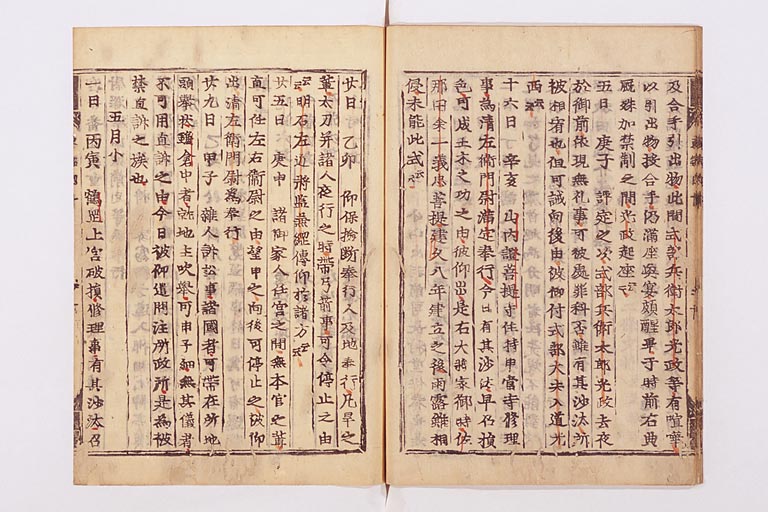 及合手引出物此間式部兵衛太郎光政等有喧嘩
以引出物授合手仍滿座與宴頗醒畢于時前右典
厩殊加禁制之間光政起座云云
五日 庚子 評定之次式部兵衛太郎光政去夜
於御前依現無礼事可被處罪科否雖有其沙汰所
被相宥也但可誡向後由被仰付式部大夫入道光
西云云
十六日 辛亥 山内證菩提寺住持申當寺修理
事爲清左衛門尉滿定奉行今日有其沙汰早召損
色可成土木之功之由被仰出是右大將家御時佐
那田余一義忠菩提建久八年建立之後雨露雖相
侵未能此式云云
廿日 乙卯 仰保撿断奉行人及地奉行凡早之
輩太刀并諸人夜行之時帶弓箭事可令停止之由
云云明石左近將監兼經傳仰於諸方云云
廿五日 庚申 諸御家人任官之間無本官之輩
直可任左右衛尉之由望申之向後可停止之被仰
出清左衛門尉爲奉行
廿九日 甲子 雜人訴訟事諸國者可帶在所地
頭擧状鎌倉中者就地主吹擧可申子細無其儀者
不可用直訴之由今日被仰遣問注所政所是爲被
禁直訴之族也
五月小
一日 丙寅 鶴岡上宮破損修理事有其沙汰召